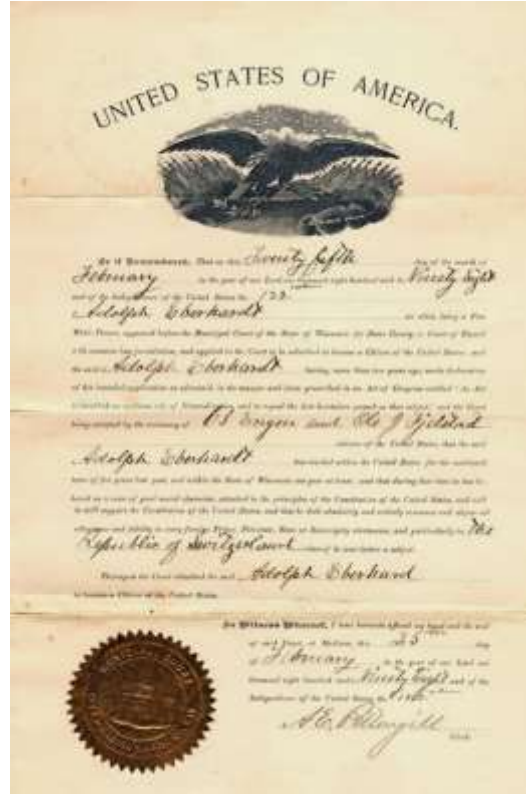 UNITED STATES OF AMERICA.
Be it Remembered, That on this Twenty fifth day of the month of
February in the year of our Lord one thousand eight hundred and Ninety Eight
and of the Independence of the United States the 122
Adolph Eberhardt an Alien, being a Free
White Person, appeared before the Municipal Court of the State of Wisconsin for Dane County, a Court of Record
with common law jurisdiction, and applied to the Court to be admitted to become a Citizen of the United States, and
the said Adolph Eberhardt having, more than two years ago, made declaration
of his intended application so
being by the testimony of and Ole J.
citizens of the United States, that the said
Adolph Eberhardt has resided within the United States, for the continued
term of five years last past, and within the State of Wisconsin one year at least, and that during that time he has be-
haved as a man of good moral character, attached to the principles of the Constitution of the United States, and well
support the Constitution of the United States, and that he doth absolutely and entirely renounce and abjure all
allegiance and fidelity to every foreign Prince, Potentate, State or Sovereignty whatsoever, and particularly to The
Republic of Switzerland whereof he was before a subject.
Thereupon the Court admitted the said Adolph Eberhard
to become a Citizen of the United States.
In Witness Whereof, I have hereunto affixed my hand and the seal
of said Court, at Madison, this 25 day
of February in the year of our Lord one
thousand eight hundred and Ninety Eight and of the
Independence of the United States the
Clerk.